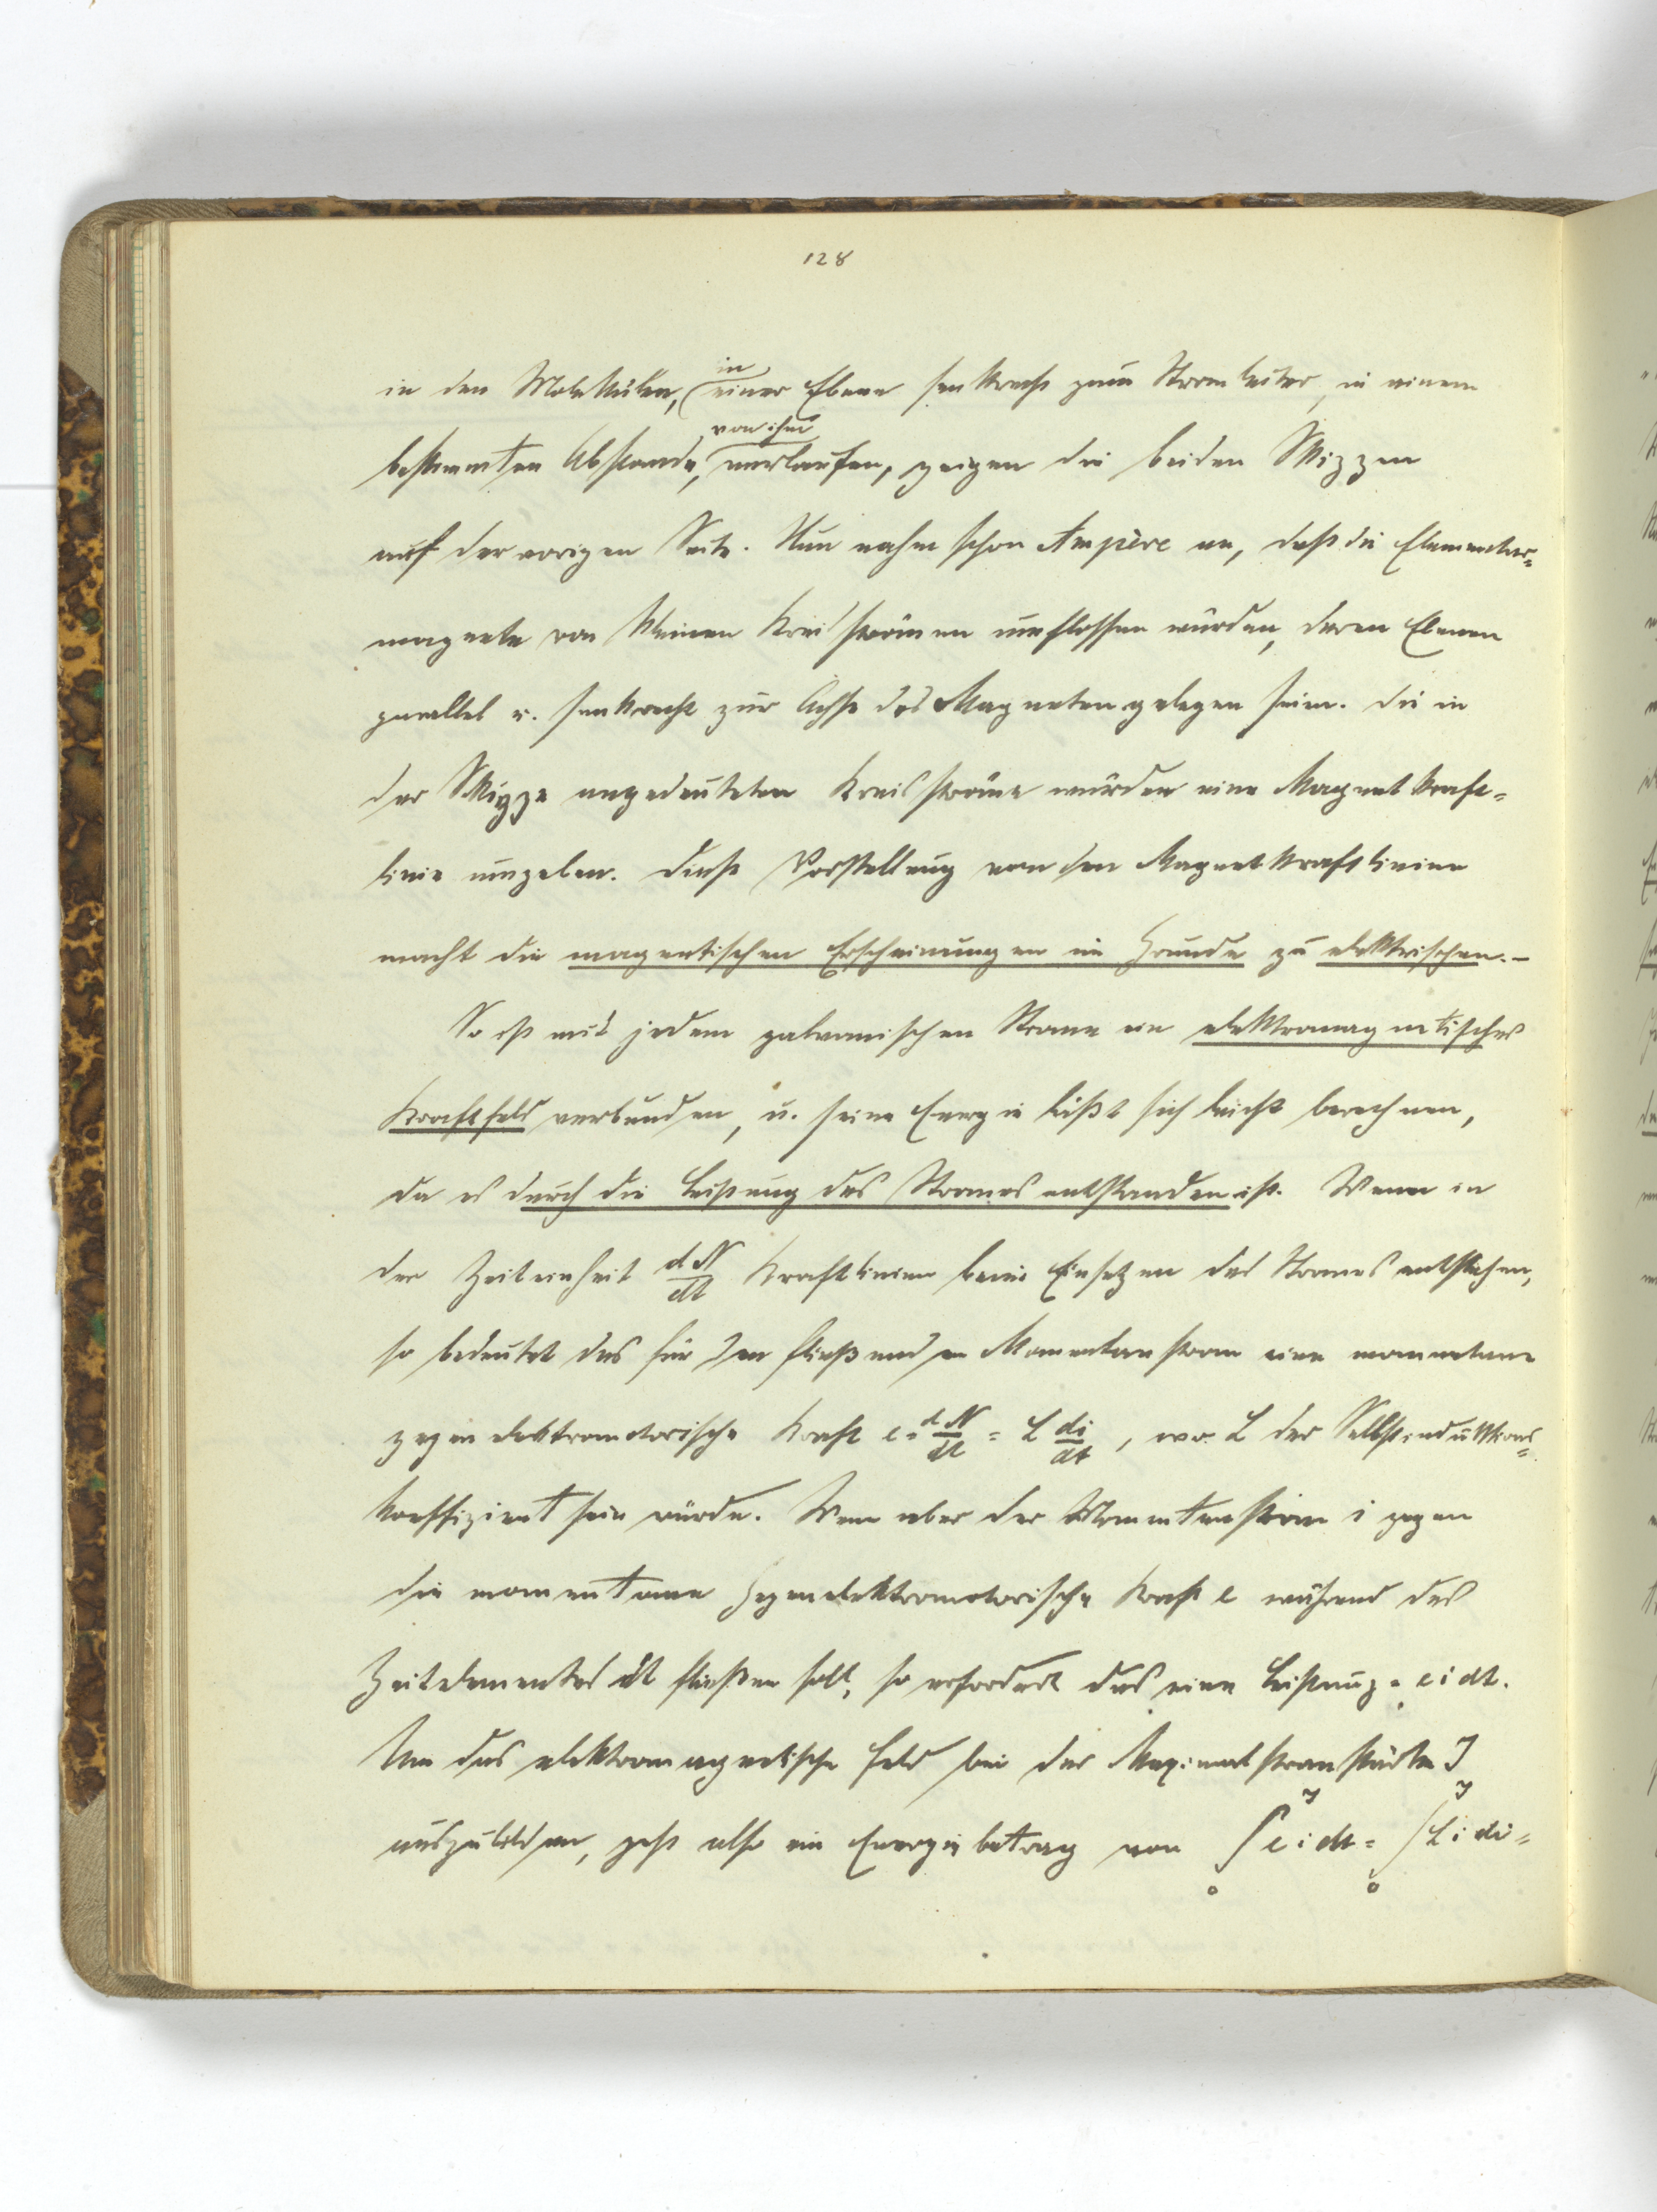 128
in den Molekülen, in einer Ebene senkrecht zum Stromleiter, in einem
bestimmten Abstande, von ihm verlaufen, zeigen die beiden Skizzen
auf der vorigen Seite. Nun nahm schon Ampère an, daß die Elementar=
magnete von kleinen Kreisströmen umflossen würden, deren Ebenen
parallel u. senkrecht zur Achse des Magneten gelegen seien. Die in
der Skizze angedeuteten Kreisströme würden eine Magnetkraft=
linie umgeben. Diese Vorstellung von den Magnetkraftlinien
macht die magnetischen Erscheinungen im Grunde zu elektrischen.-
So ist mit jedem galvanischen Strome ein elektromagnetisches
Kraftfeld verbunden, u. seine Energie läßt sich leicht berechnen,
da es durch die Leistung des Stromes entstanden ist. Wenn in
der Zeiteinheit dN/dt Kraftlinien beim Einsetzen des Stromes entstehen,
so bedeutet das für den fließenden Momentanstrom eine momentane
gegenelektromotorische Kraft e = dN/dt = L di/dt, wo L der Selbstinduktions=
koeffizient sein würde. Wenn aber der Momentanstrom i gegen
die momentane Gegenelektromotorische Kraft e während des
Zeitelementes dt fließen soll, so erfordert das eine Leistung = e i dt.
Um das elektromagnetische Feld bei der Maximalstromstärke J
auszubilden, geht also ein Energiebetrag von ∫₀ᴶ e i dt = ∫₀ᴶ L i di =